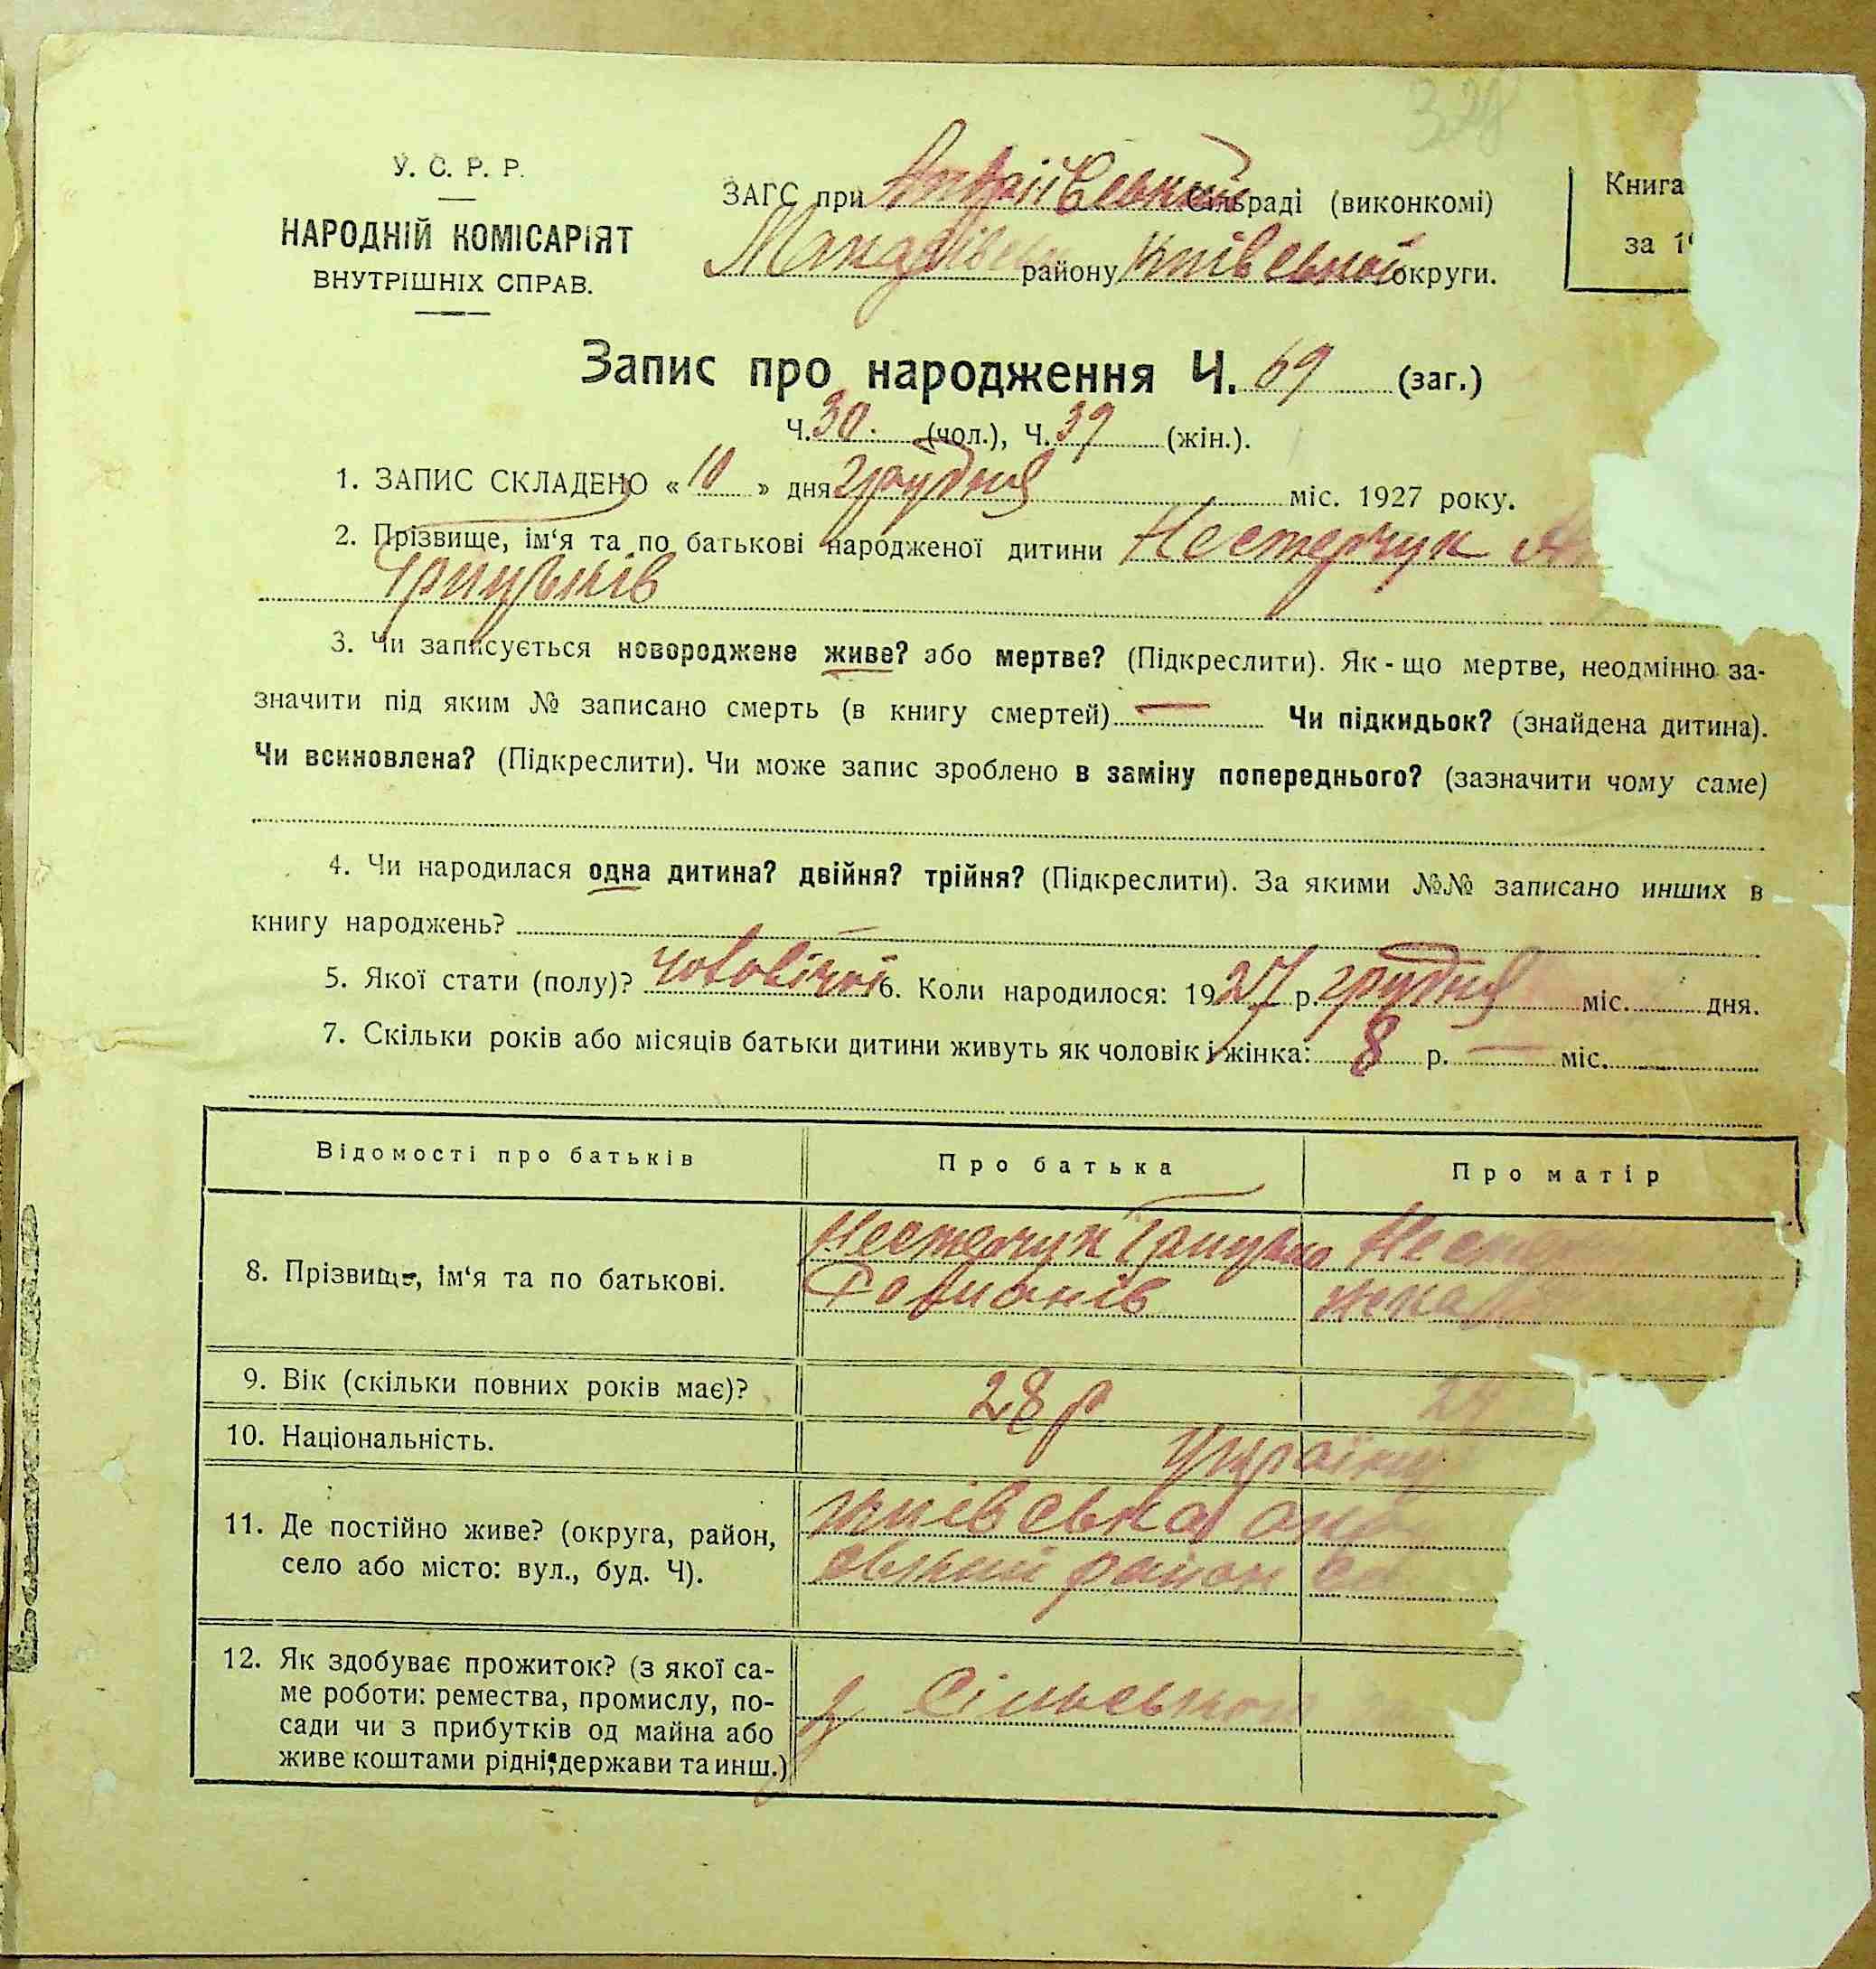 328
У. С. Р. Р.
НАРОДНІЙ КОМІСАРІЯТ
ВНУТРІШНІХ СПРАВ.
ЗАГС при Сільраді (виконкомі)
району Київської округи.
Книга
за 1
Запис про народження Ч. 69 (заг.)
Ч. 30. (чол.), Ч. 39 (жін.).
1. ЗАПИС СКЛАДЕНО « 10 » дня грудня міс. 1927 року.
2. Прізвище, ім‘я та по батькові народженої дитини Нестерчук
Грицьків
3. Чи записується новороджене живе? або мертве? (Підкреслити). Як - що мертве, неодмінно за-
значити під яким № записано смерть (в книгу смертей) — Чи підкидьок? (знайдена дитина).
Чи всиновлена? (Підкреслити). Чи може запис зроблено в заміну попереднього? (зазначити чому саме)
4. Чи народилася одна дитина? двійня? трійня? (Підкреслити). За якими №№ записано инших в
книгу народжень?
5. Якої стати (полу)? 6. Коли народилося: 1927 р. грудня міс. дня.
7. Скільки років або місяців батьки дитини живуть як чоловік і жінка: 8 р. — міс.
Відомості про батьків
Про батька
Про матір
8. Прізвище, ім‘я та по батькові.
Нестерчук Грицько
Романів
9. Вік (скільки повних років має)?
28 р
10. Національність.
11. Де постійно живе? (округа, район,
село або місто: вул., буд. Ч).
Київська
район
12. Як здобуває прожиток? (з якої са-
ме роботи: ремества, промислу, по-
сади чи з прибутків од майна або
живе коштами рідні, держави та инш.)
з